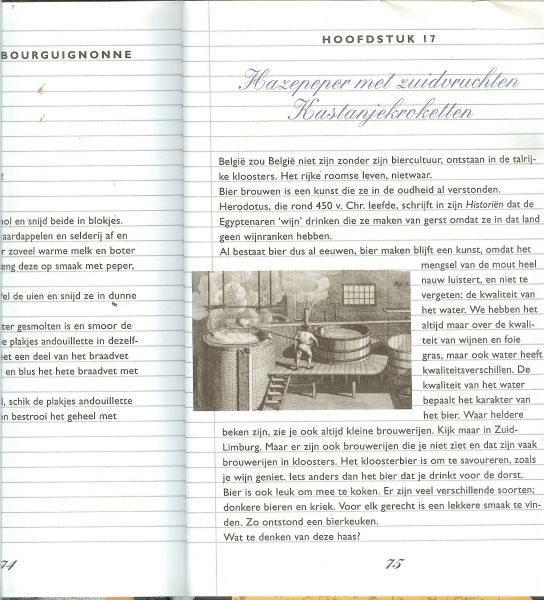 BOURGUIGNONNE
nol en snijd beide in blokjes.
aardappelen en selderij af en
r zoveel warme melk en boter
eng deze op smaak met peper,
el de uien en snijd ze in dunne
ter gesmolten is en smoor de
e plakjes andouillette in dezelf-
iet een deel van het braadvet
en blus het hete braadvet met
l, schik de plakjes andouillette
en bestrooi het geheel met
74
HOOFDSTUK 17
Hazepeper met zuidvruchten
Kastanjekroketten
België zou België niet zijn zonder zijn biercultuur, ontstaan in de talrij-
ke kloosters. Het rijke roomse leven, nietwaar.
Bier brouwen is een kunst die ze in de oudheid al verstonden.
Herodotus, die rond 450 v. Chr. leefde, schrijft in zijn Historiën dat de
Egyptenaren 'wijn' drinken die ze maken van gerst omdat ze in dat land
geen wijnranken hebben.
Al bestaat bier dus al eeuwen, bier maken blijft een kunst, omdat het
mengsel van de mout heel
nauw luistert, en niet te
vergeten: de kwaliteit van
het water. We hebben het
altijd maar over de kwali-
teit van wijnen en foie
gras, maar ook water heeft
kwaliteitsverschillen. De
kwaliteit van het water
bepaalt het karakter van
het bier. Waar heldere
beken zijn, zie je ook altijd kleine brouwerijen. Kijk maar in Zuid-
Limburg. Maar er zijn ook brouwerijen die je niet ziet en dat zijn vaak
brouwerijen in kloosters. Het kloosterbier is om te savoureren, zoals
je wijn geniet. Iets anders dan het bier dat je drinkt voor de dorst.
Bier is ook leuk om mee te koken. Er zijn veel verschillende soorten;
donkere bieren en kriek. Voor elk gerecht is een lekkere smaak te vin-
den. Zo ontstond een bierkeuken.
Wat te denken van deze haas?
75